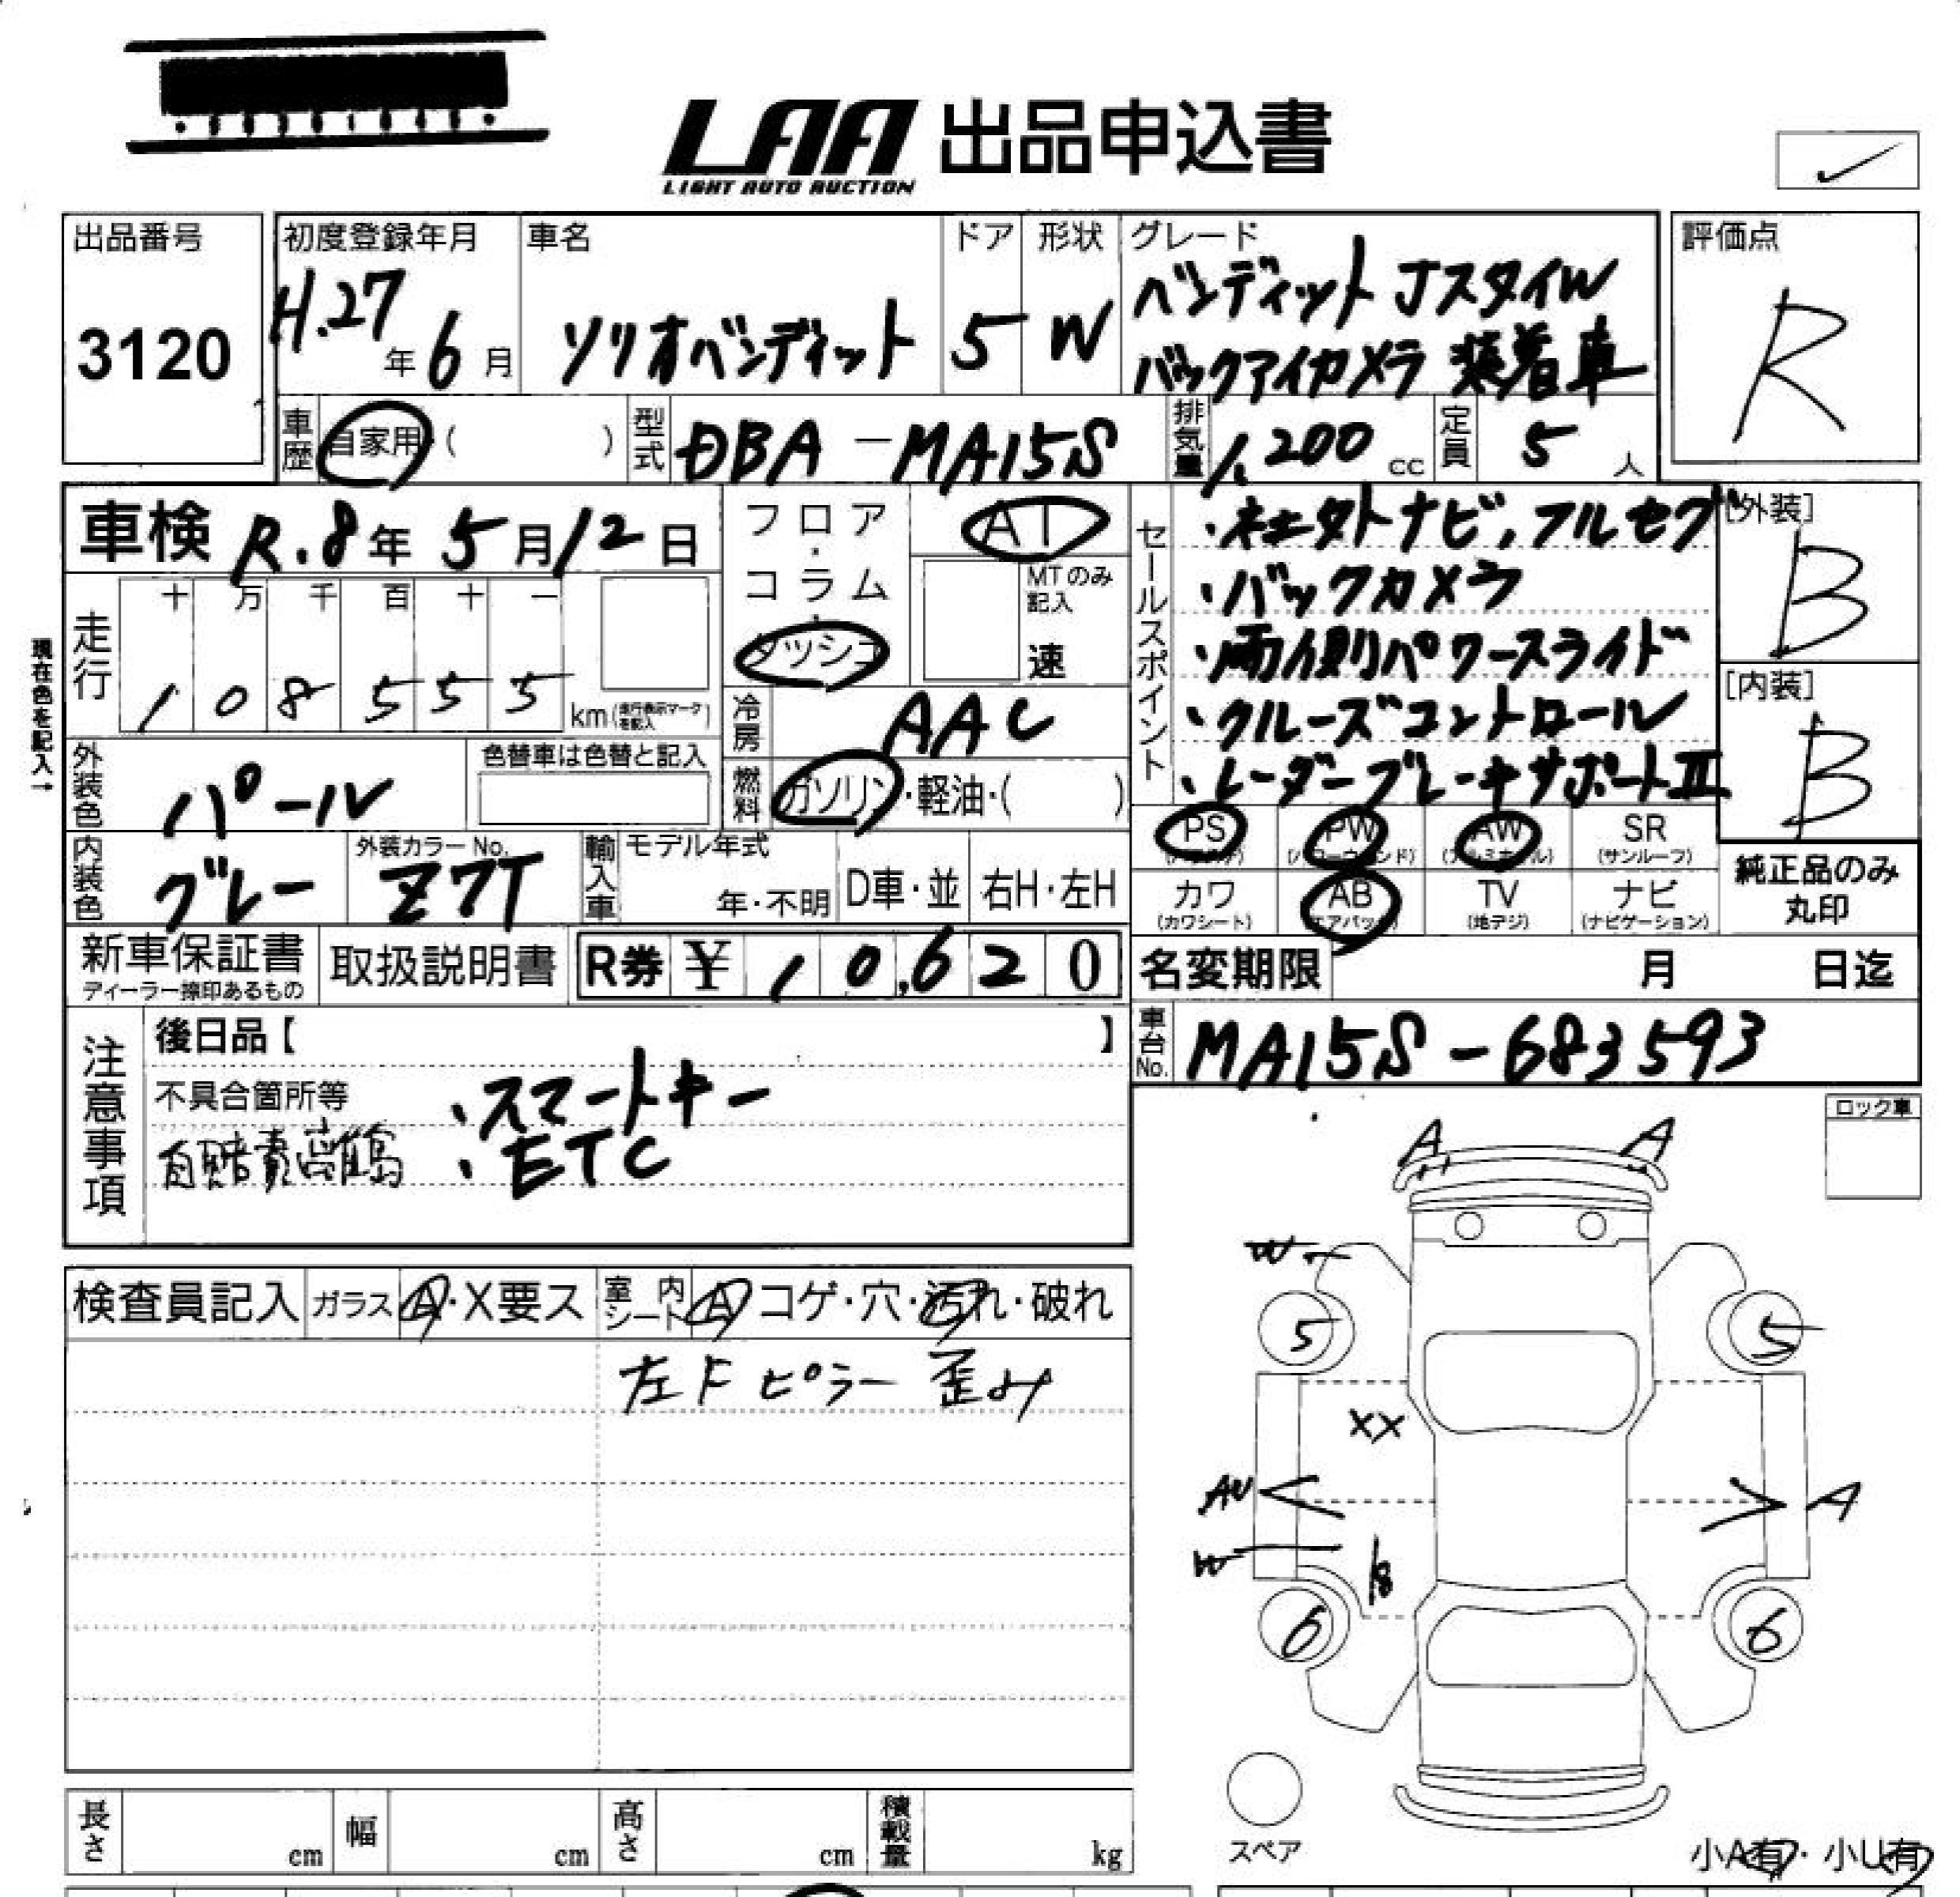 LAA 出品申込書
LIGHT AUTO AUCTION
出品番号
3120
初度登録年月
H.27年6月
車名
ソリオバンディット
ドア
5
形状
W
グレード
バンディット Jスタイル
バックアイカメラ 装着車
評価点
R
車歴
自家用・( )
型式
DBA-MA15S
排気量
1,200 cc
定員
5 人
車検 R.8年 5月12日
フロア・コラム・ダッシュ
AT
MTのみ記入
速
セールスポイント
・ネモタトナビ,フルセグ
・バックカメラ
・両側パワースライド
・クルーズコントロール
・レーダーブレーキサポートII
[外装]
B
[内装]
B
現在色を記入→
走行
十 万 千 百 十 一
1 0 8 5 5 5
km(走行表示マークを記入)
冷房
AAC
燃料
ガソリン・軽油・( )
外装色
パール
色替車は色替と記入
内装色
グレー
外装カラーNo.
Z7T
輸入車
モデル年式
年・不明
D車・並
右H・左H
PS
(パワステ)
PW
(パワーウィンド)
AW
(アルミホイル)
SR
(サンルーフ)
カワ
(カワシート)
AB
(エアバック)
TV
(地デジ)
ナビ
(ナビゲーション)
純正品のみ
丸印
新車保証書
ディーラー捺印あるもの
取扱説明書
R券 ¥ 1 0,6 2 0
名変期限 月 日迄
車台No.
MA15S-683593
注意事項
後日品【 】
不具合箇所等
・スマートキー
自賠責離島
・ETC
ロック車
A A
W
5 5
XX
AU
A
W
B
6 6
スペア
小A有・小U有
検査員記入
ガラス
A・X要ス
室内シート
A コゲ・穴・汚れ・破れ
左Fピラー歪み
長さ cm
幅 cm
高さ cm
積載量 kg